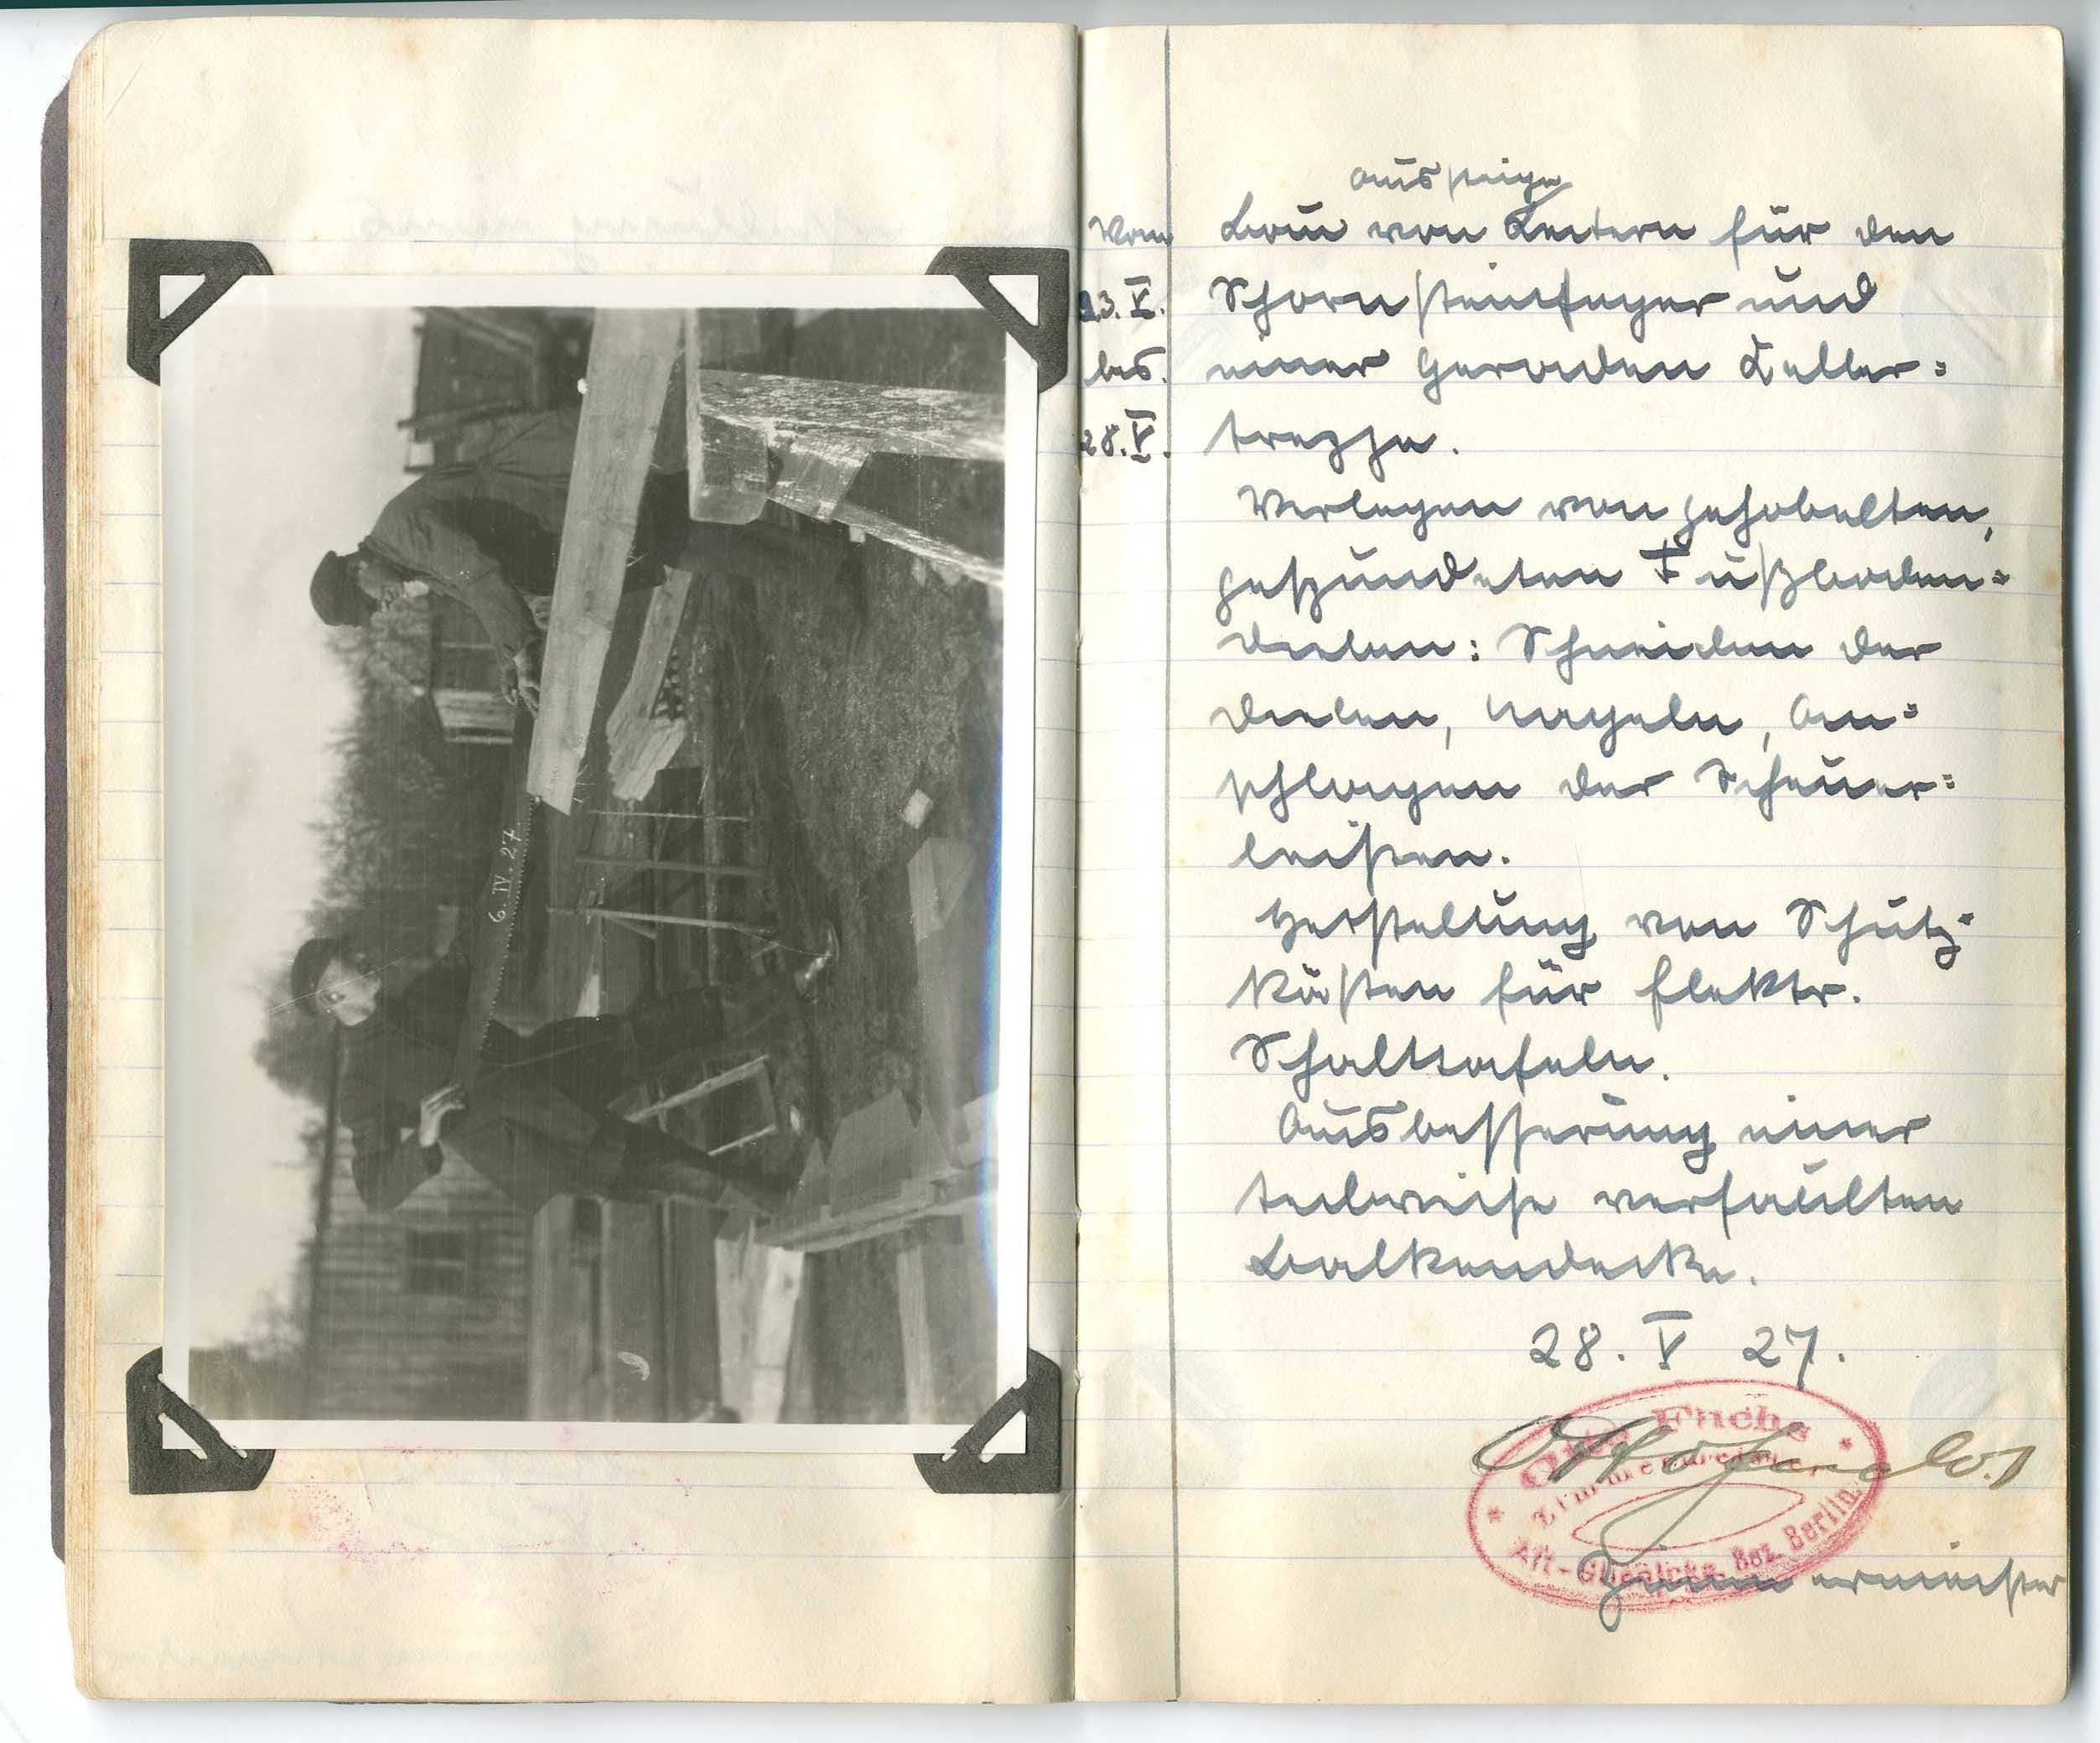 6. IV. 27
Vom
23. V.
bis.
28. V.
aussteige
Bau von Leitern für den
Schornsteinfeger und
einer geraden Keller=
treppe.
Verlegen von gehobelten,
gespundeten Fußboden=
dielen: Schneiden der
Dielen, Nageln, An=
schlagen der Scheuer=
leisten.
Herstellung von Schutz=
kästen für elektr.
Schalttafeln.
Ausbesserung einer
teilweise verfaulten
Balkendecke.
28. V 27.
Otto Fuchs
Zimmermeister
Alt-Glienicke, Bez. Berlin.
Otto
Zimmermeister